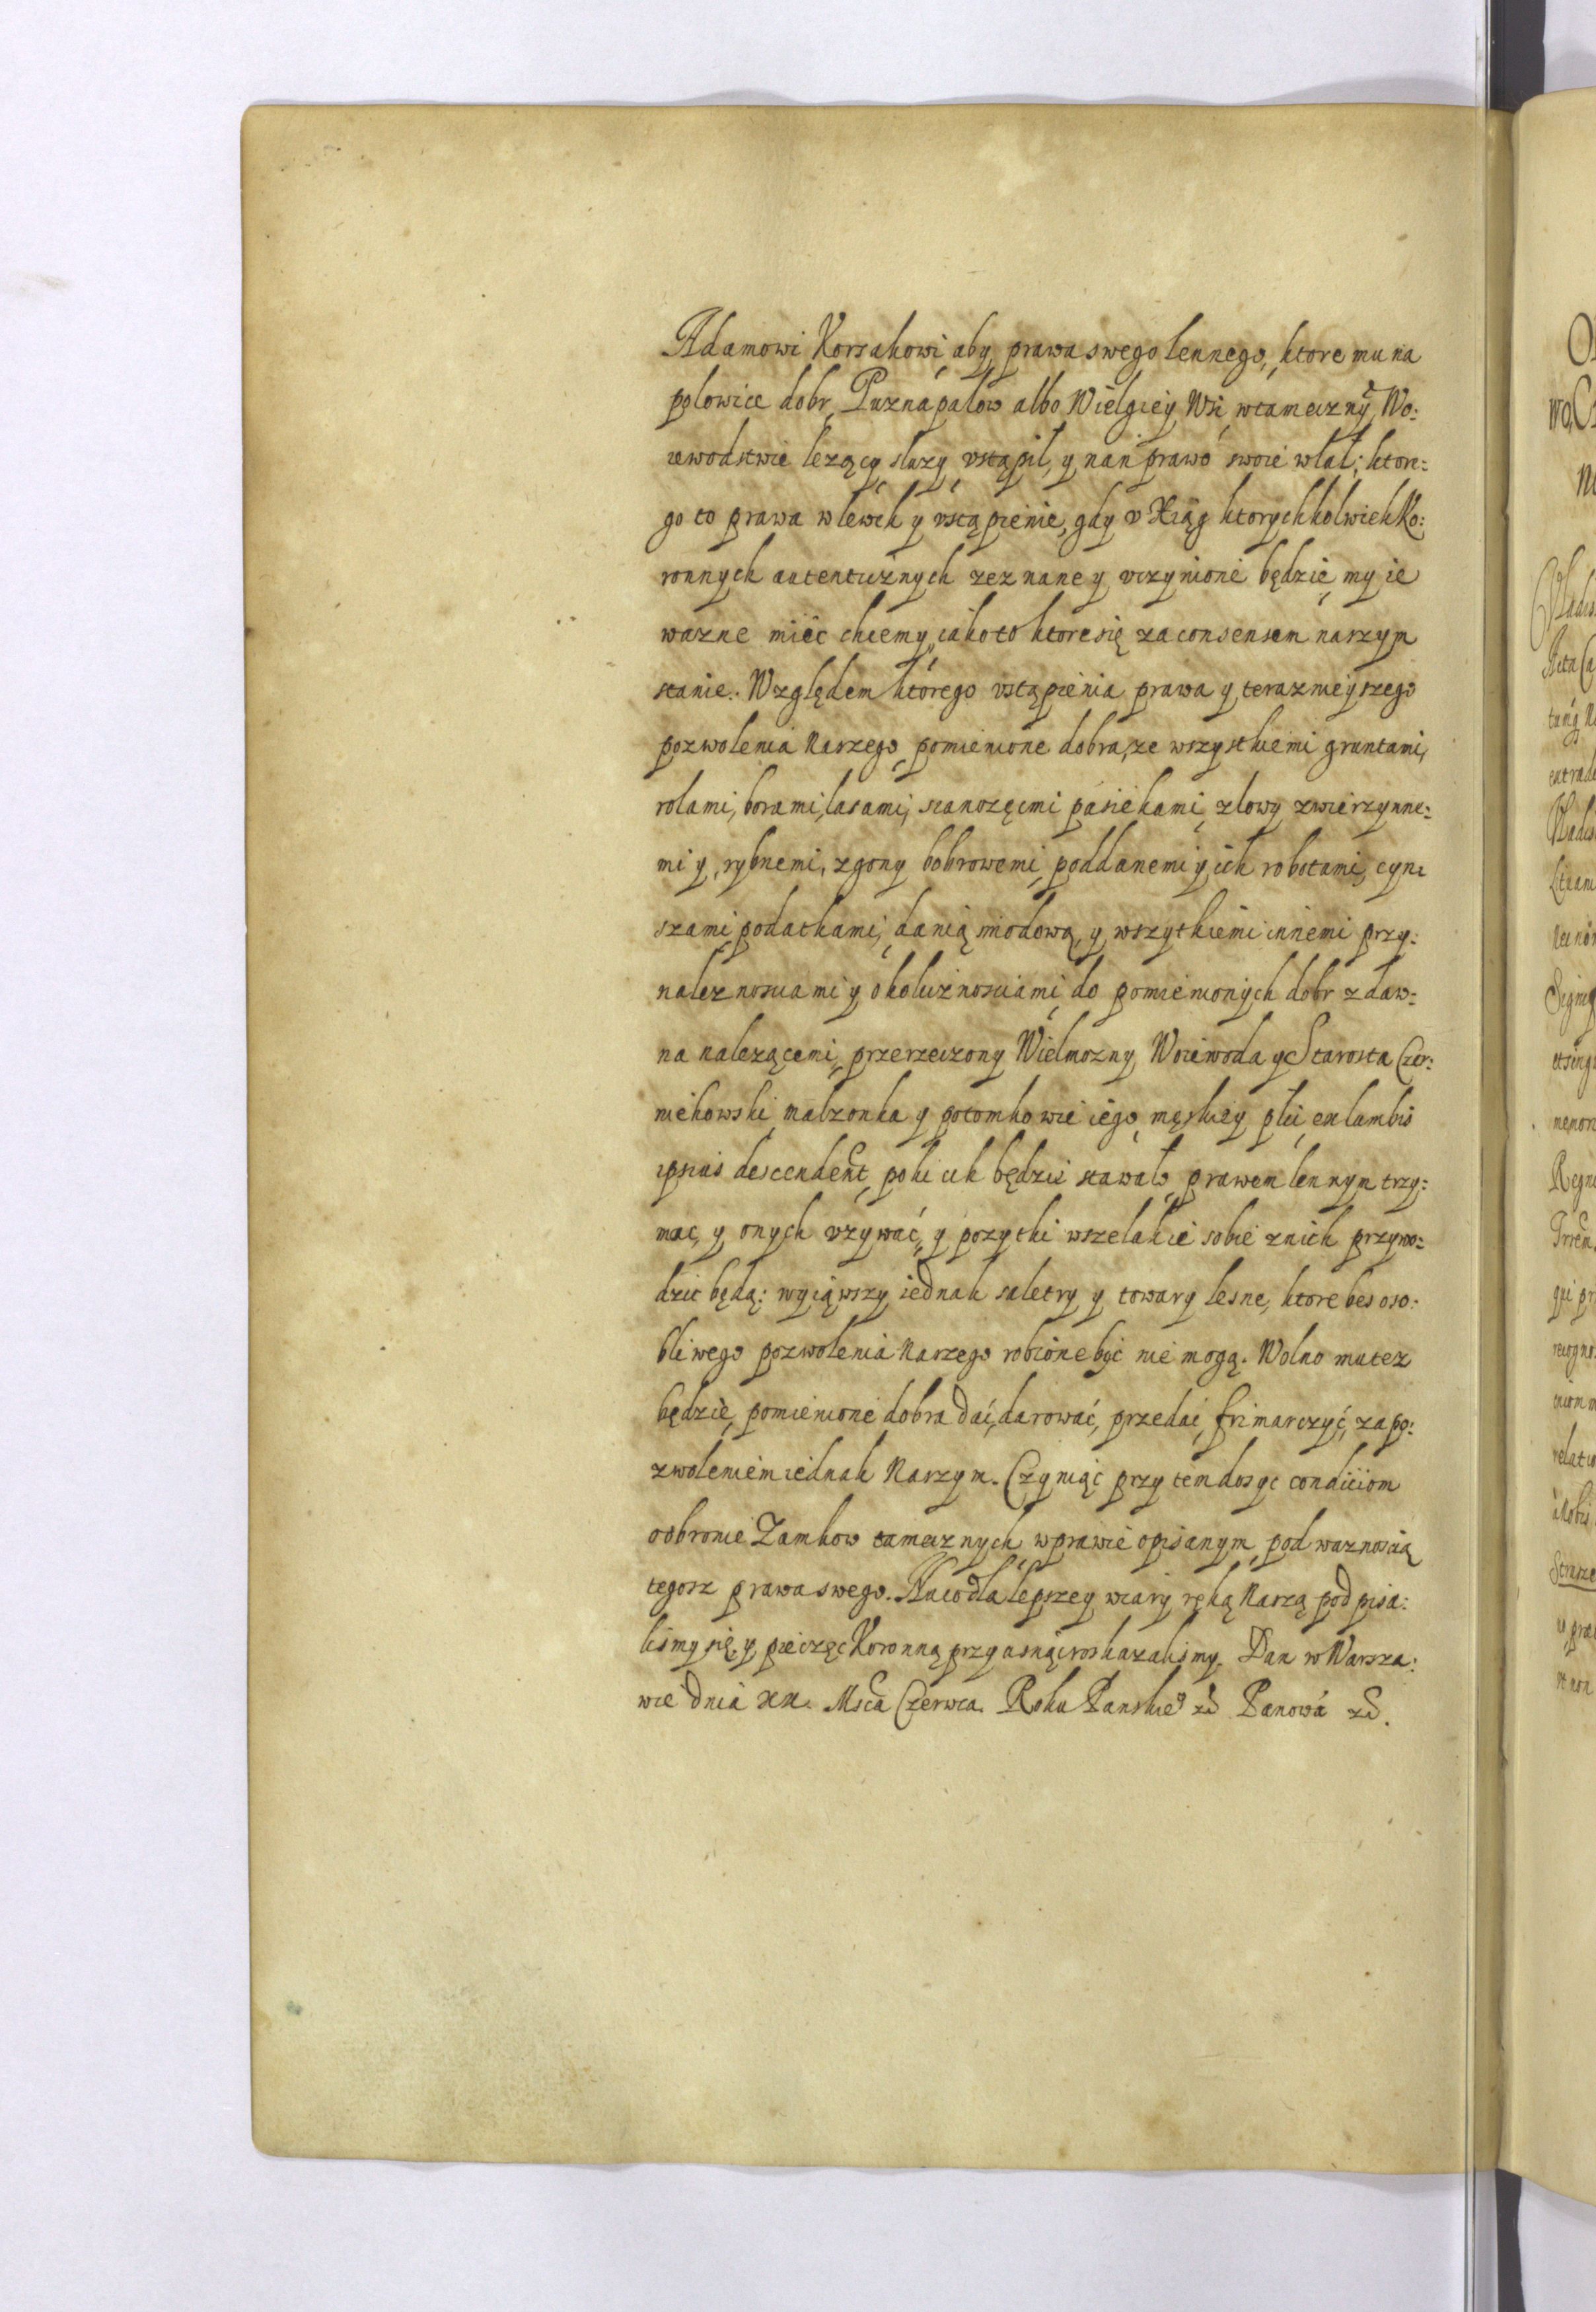 Adamowi Korsakowi, aby prawa swego lennego, ktore mu na
polowice dobr Puznapalow albo Wielgiey Wsi, w tameczny Wo:
iewodstwie lezący sluzy, vstąpil, y nań prawo swoie wlał; ktore:
go to prawa wlewek y vstąpienie, gdy v Xiąg ktorychkolwiek Ko:
ronnych autentuznych zeznane y vczynione będzie, my ie
wazne miec chcemy, iako to ktore się za consensem naszym
stanie. Względem którego vstąpienia prawa y teraznieyszego
pozwolenia Naszego, pomienione dobra, ze wszystkiemi gruntami,
rolami, borami, lasami, sianozęcmi pasiekami, z lowy zwierzynne:
mi y rybnemi, z gony bobrowemi, poddanemi y ich robotami, cyn:
szami, podatkami, danią miodową, y wszytkiemi innemi przy:
naleznosciami y okolicznosciami, do pomienionych dobr zdaw:
na nalezącemi, przerzeczony Wielmozny Woiewoda y Starosta Czer:
niehowski, malzonka y potomkowie iego męskiey płci, ex lumbis
ipsius descendent, poki ich będzie stawało, prawem lennym trzy:
mac, y onych vzywać, y pozytki wszelakie sobie znich przywo:
dzic będą: wyiąwszy iednak saletry y towary lesne, ktore bes oso:
bliwego pozwolenia Naszego robione być nie mogą. Wolno mu tez
będzie, pomienione dobra dać, darować, przedać, frimarczyć, za po:
zwoleniem iednak Naszym. Czyniąc przy tem dosyc condiciom
o obronie Zamkow tamecznych w prawie opisanym, pod waznoscią
tegosz prawa swego. Na co dla lepszey wiary ręką Naszą podpisa:
lismy się, y pieczęc Koronną przycisnąc roskazalismy. Dan w Warsza:
wie dnia XX. Msca Czerwca. Roku Panskie° zd Panowa zd.